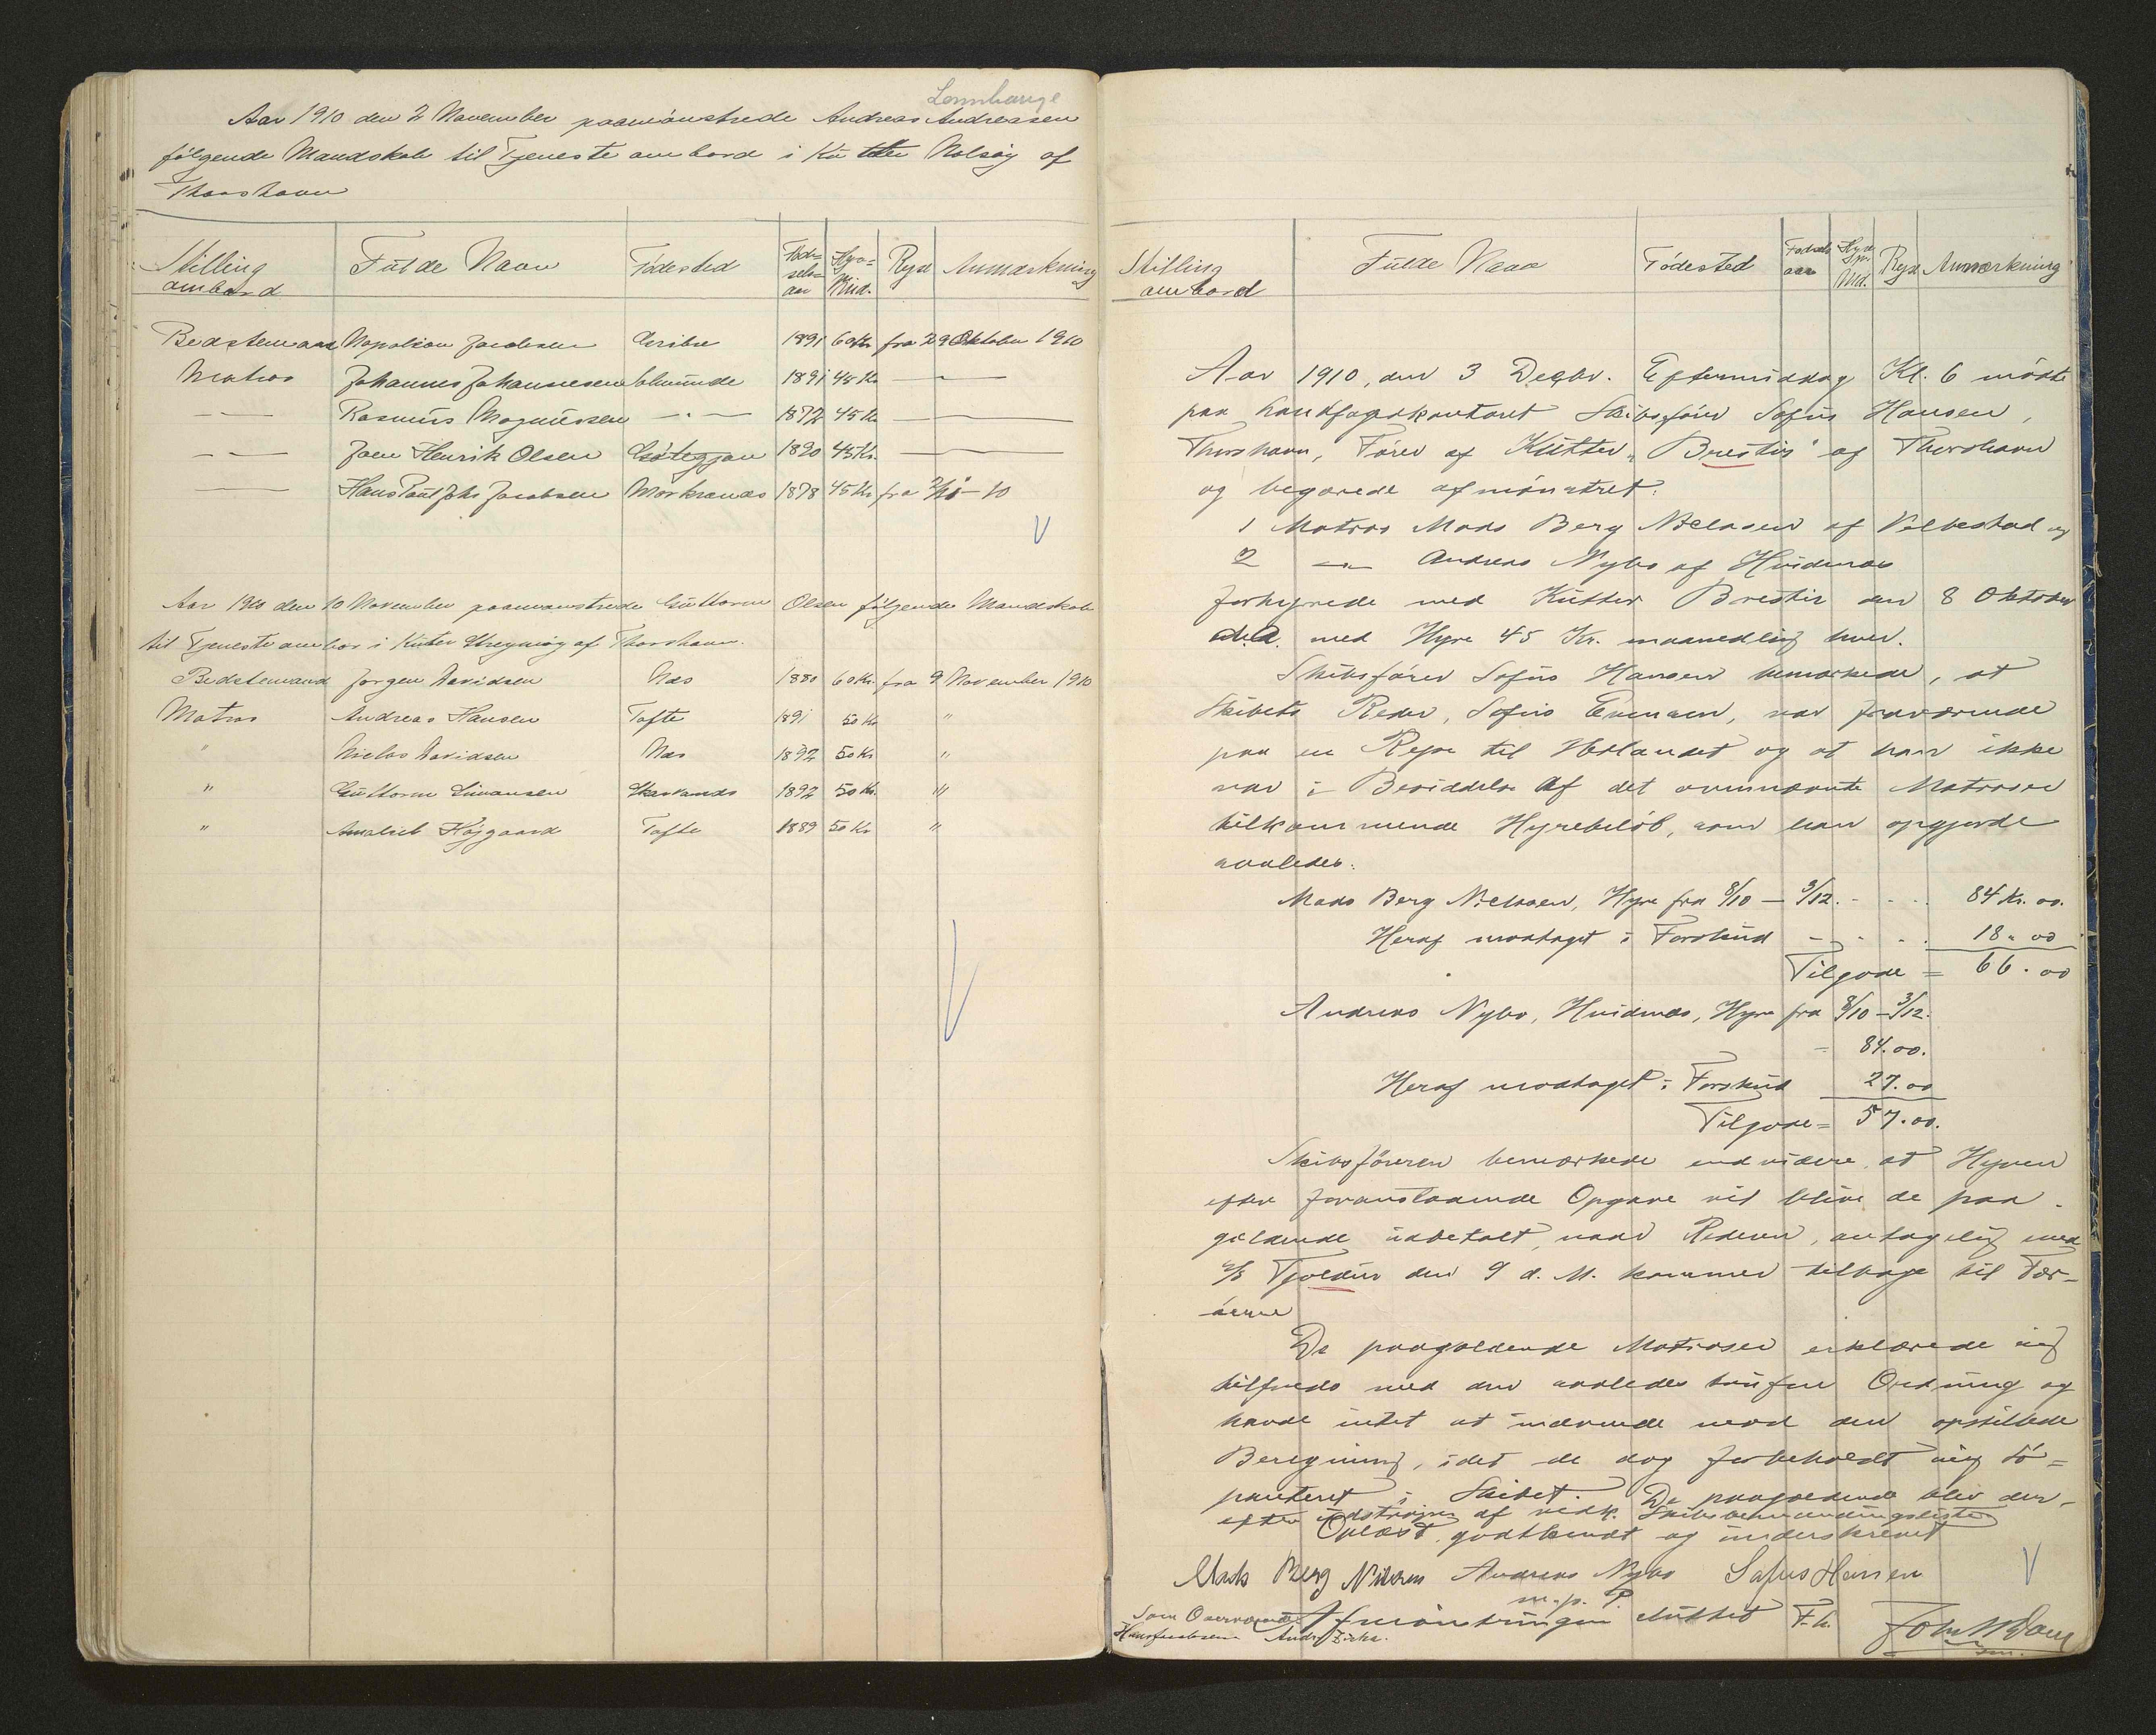 Lambhauge
Aar 1910 den 2 November paamönstrede Andreas Andreasen
fölgende Mandskab til Tjeneste ombord i Kutter Nolsöy af
Thorshavn
Stilling ombord Fulde Navn Födested Föds- sels- aar Hyre Md. Rejse Anmærkning
Bedstemand Napoleon Jacobsen 1891 60 Kr. fra 29 Oktober 1910
Matros Johannes Johannesen 1891 45 Kr — " —
— " — Rasmus Magnussen — " — 1872 45 Kr —
— " — Joen Henrik Olsen Götegjov 1890 45 Kr. —
— Hans Paul Johs Jacobsen Morkranæs 1878 45 Kr fra 2/11 - 10
Aar 1910 den 10 November paamönstrede Guttorm Olsen fölgende Mandskab
til Tjeneste ombor i Kutter Streymoy af Thorshavn.
Bedstemand Jörgen Davidsen Næs 1880 60 Kr. fra 9 November 1910
Matros Andreas Hansen Tofte 1891 50 Kr "
" Niclas Davidsen Næs 1892 50 Kr "
" Guttorm Simonsen 1892 50 Kr. "
" Højgaard Tofte 1889 50 Kr "
Stilling ombord Fulde Navn Födested Födsels aar Hyre pr. Md. Rejse Anmærkning
Aar 1910, den 3 Decbr. Eftermiddag Kl. 6 mödte
paa Landfogedkontoret Skibsförer Sofus Hansen,
Thorshavn, Förer af Kutter "Brestir" af Thorshavn
og begærede afmönstret:
1 Matros Mads Berg Nielsen af Velbestad og
2 — " — Andreas Nybo af Hvidenæs
forhyrede med Kutter Brestir den 8 Oktober
d.A. med Hyre 45 Kr. maanedlig hver.
Skibsförer Sofus Hansen bemærkede, at
Skibets Reder, Sofus Evensen, var fraværende
paa en Rejse til Hetlandet og at han ikke
var i Besiddelse af det ovennævnte Matroser
tilkommende Hyrebelöb, som han opgjorde
saaledes:
Mads Berg Nielsen, Hyre fra 8/10 — 3/12. - - - 84 Kr. 00.
Heraf modtaget i Forskud - - - - 18 " 00
Tilgode = 66.00
Andreas Nybo, Hvidenæs, Hyre fra 8/10 — 3/12.
= 84.00.
Heraf modtaget i Forskud 27.00
Tilgode = 57.00.
Skibsföreren bemærkede endvidere, at Hyren
efter foranstaaende Opgave vil blive de paa-
gældende udbetalt, naar Rederen, antagelig med
S/S Tjaldur den 9 d. M. kommer tilbage til Fær-
öerne
De paagældende Matroser erklærede sig
tilfreds med den saaledes trufne Ordning og
havde intet at indvende mod den opstillede
Beregning, idet de dog forbeholdt sig Sö-
panteret i Skibet. De paagældende blev der-
efter udströgne af vedk. Skibsbemandingsliste
Oplæst, godkendt og underskrevet
Mads Berg Nielsen Andreas Nybo Sofus Hansen
m. p. P.
Som Overværende Afmönstringen sluttet F. h.
Hans Jacobsen